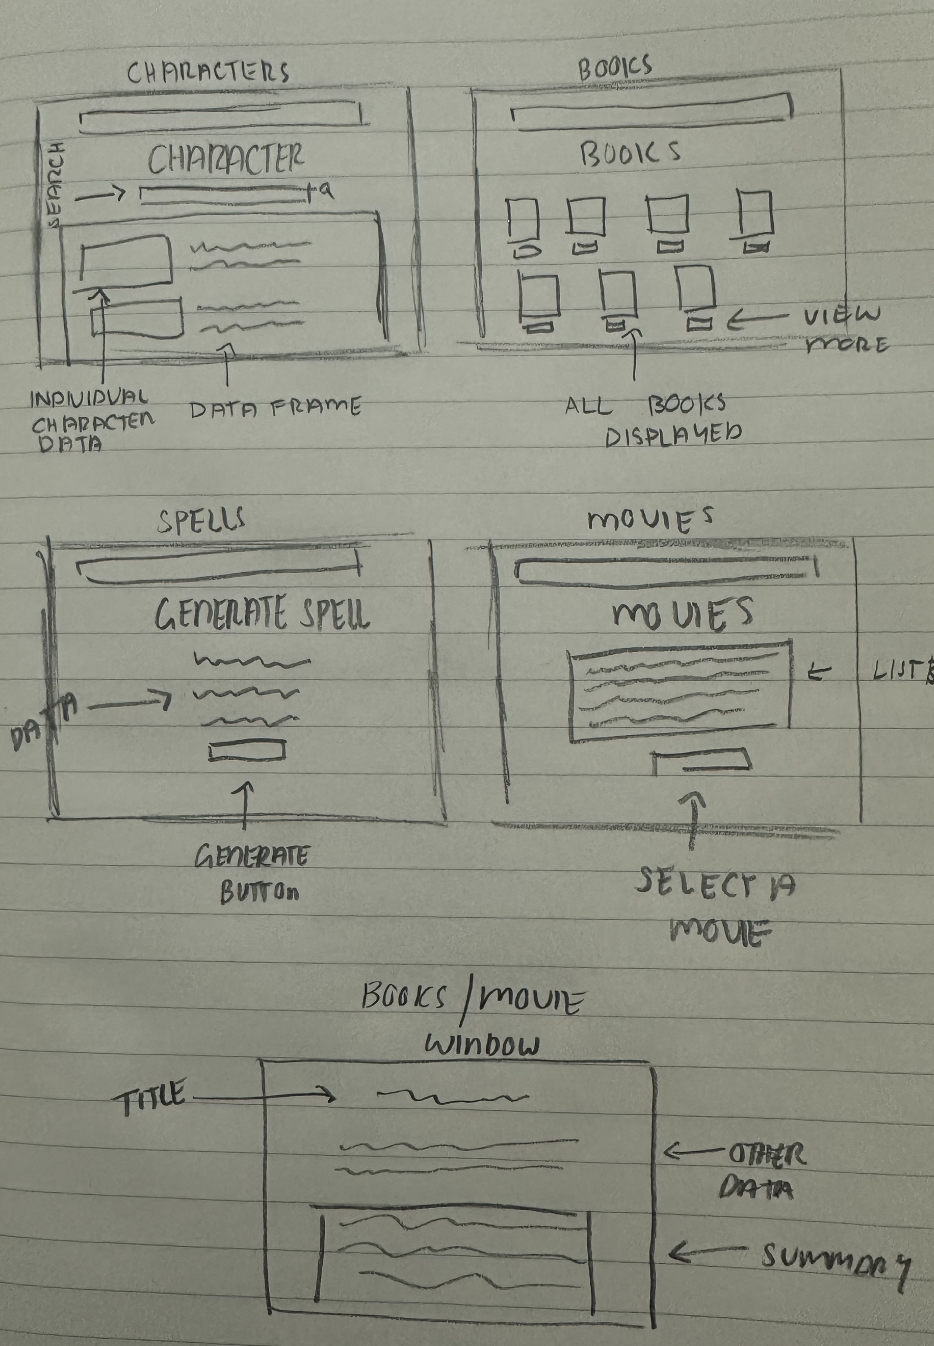 CHARACTERS
SEARCH
CHARACTER
INDIVIDUAL
CHARACTER
DATA
DATA FRAME
BOOKS
BOOKS
VIEW
MORE
ALL BOOKS
DISPLAYED
SPELLS
GENERATE SPELL
DATA
GENERATE
BUTTON
MOVIES
MOVIES
LISTB
SELECT A
MOVIE
BOOKS/MOVIE
WINDOW
TITLE
OTHER
DATA
SUMMARY